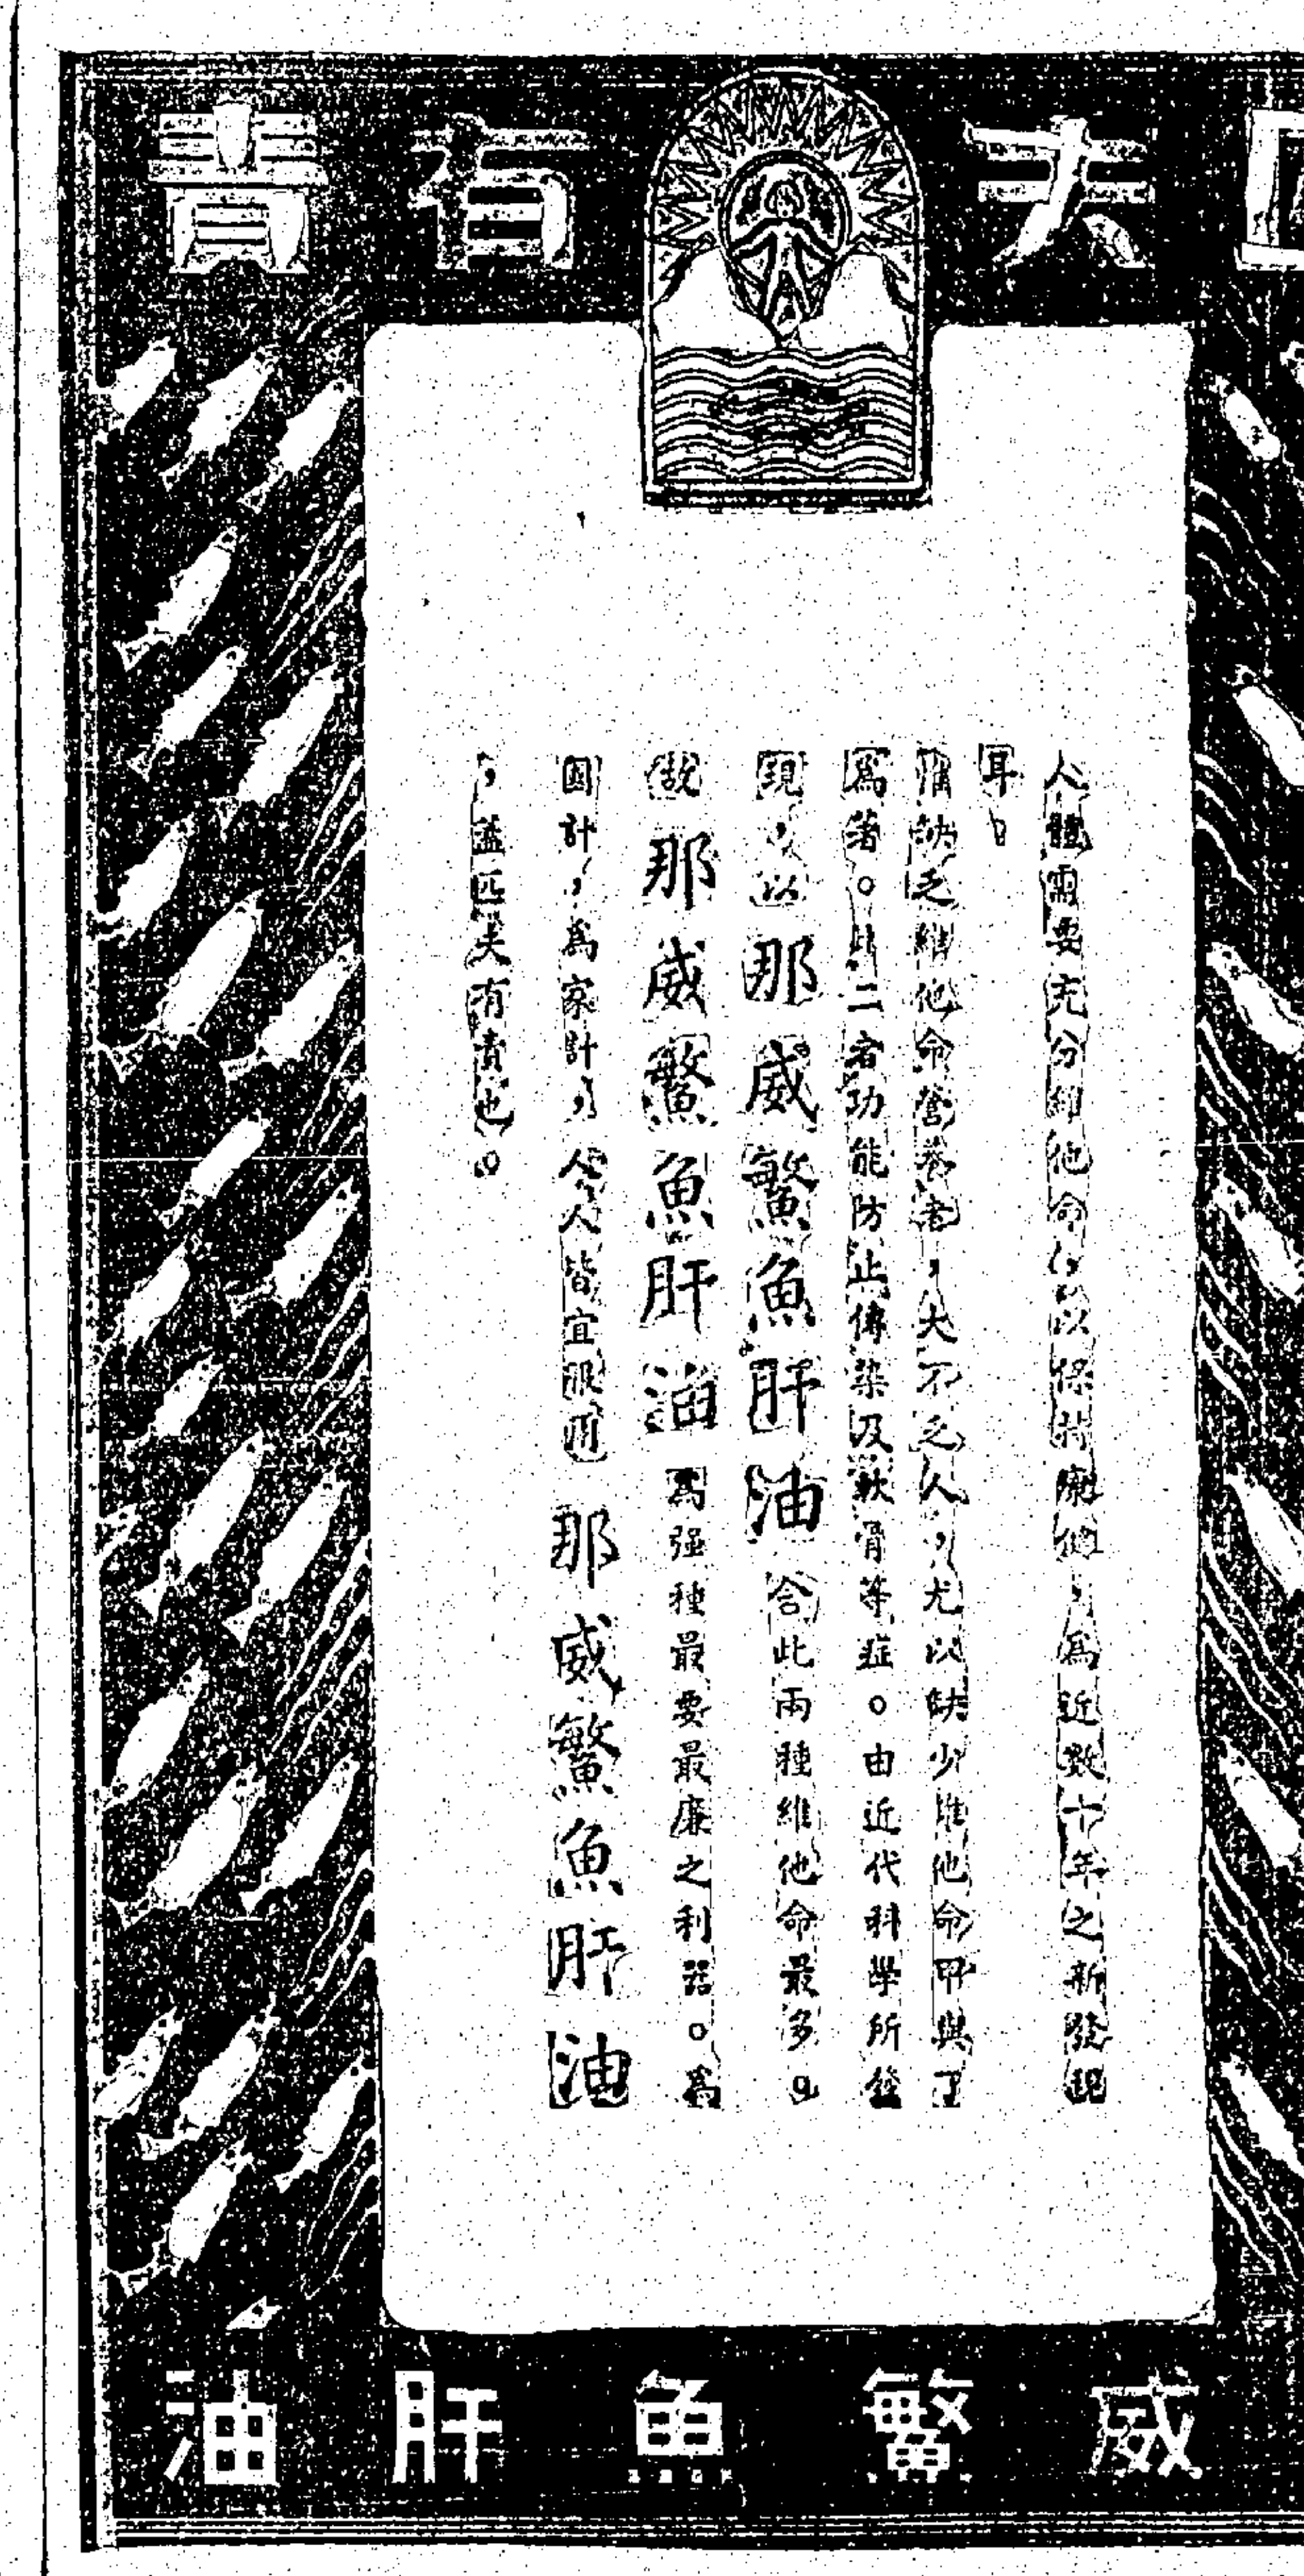 夫有責
人體需要充分維他命，以保持康健，爲近數十年之新發現
耳。
缺乏維他命營養者，大不乏人，尤以缺少維他命甲與丁
爲著。此二者功能防止傳染及軟骨等症。由近代科學所發
現，以那威鰵魚肝油含此兩種維他命最多。
故那威鰵魚肝油爲强種最要最廉之利器。爲
國計，爲家計，人人皆宜服用那威鰵魚肝油
，盖匹夫有責也。
威鰵魚肝油